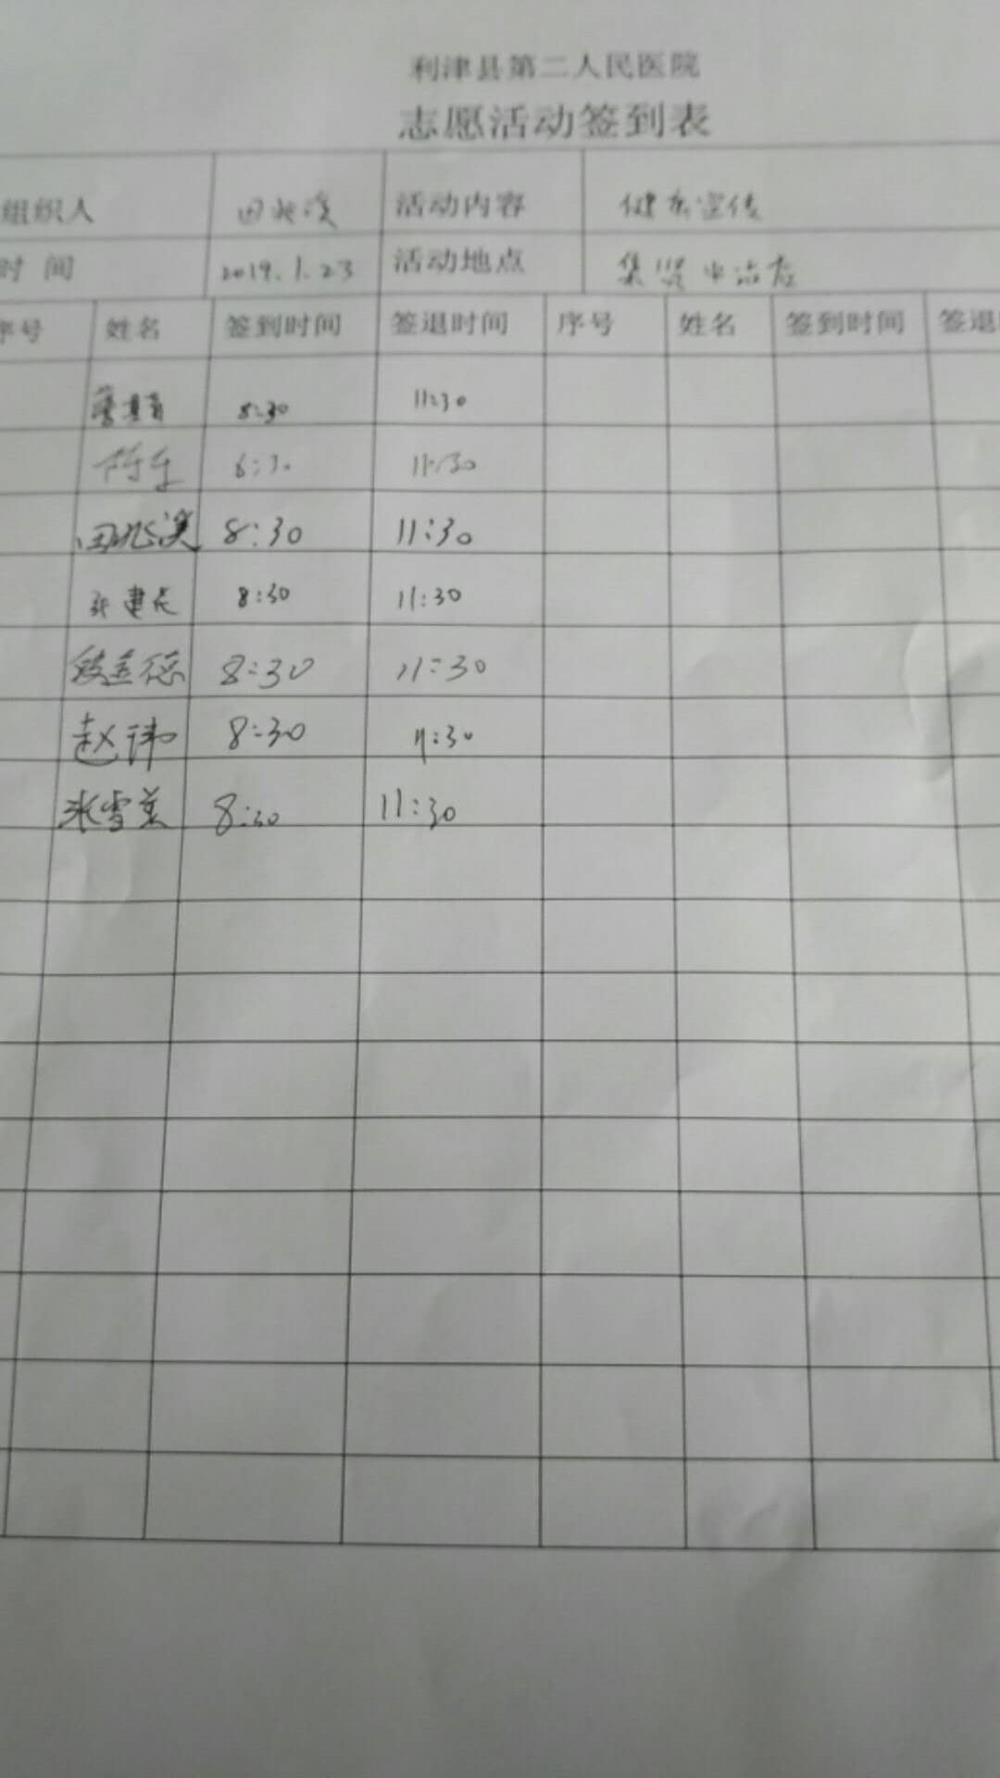 利津县第二人民医院
志愿活动签到表
组织人 田兆溪 活动内容 健康宣传
时 间 2019.1.23 活动地点 集贤
序号 姓名 签到时间 签退时间 序号 姓名 签到时间 签退
8:30 11:30
11:30
田兆溪 8:30 11:30
张建 8:30 11:30
8:30 11:30
赵祎 8:30 11:30
张雪 8:30 11:30